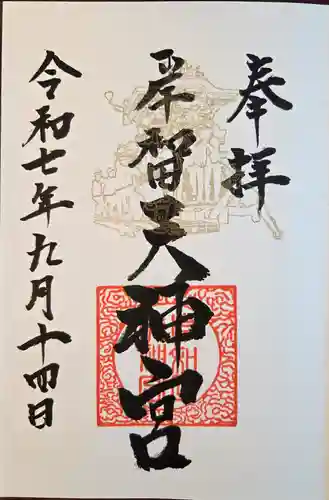 奉拝
岸和田天神宮
令和七年九月十四日